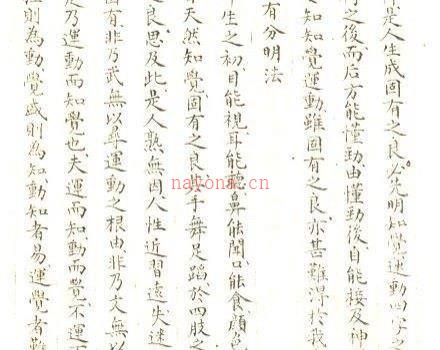 是人生成固有之良必先明知覺運動四字之
得之後而后方能懂勁由懂勁後自能接及神
知知覺運動雖固有之良亦甚難淂於我
有分明法
生之初目能視耳能聽鼻能聞口能食顏色
天然知覺固有之良其手舞足蹈於四肢之
良思及此是人熟無因人性近習遠失迷
固有非乃武無以尋運動之根由非乃文無以
乃運動而知覺也夫運而知動而覺不運
則為動覺盛則為知動知者易運覺者難
nayona.cn